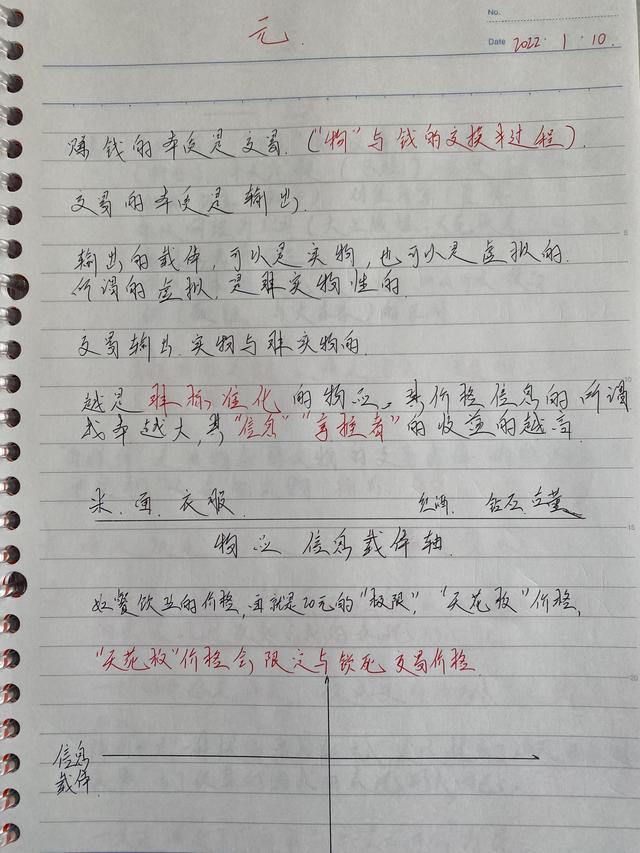 No.
Date 2022 . 1 . 10.
元.
赚钱的本质是交易.（“物”与钱的交换过程）.
交易的本质是输出,
输出的载体, 可以是实物, 也可以是虚拟的.
所谓的虚拟, 是非实物性的.
交易输出 实物与非实物的.
越是非标准化的物品, 其价格信息的所谓
成本越大, 其“信息”“掌握者”的收益的越高
米. 面. 衣服 红酒. 钻石. 古董
物品 信息载体轴.
如餐饮业的价格, 面就是20元的“极限”,“天花板”价格,
“天花板”价格会限定与锁死交易价格
信息
载体